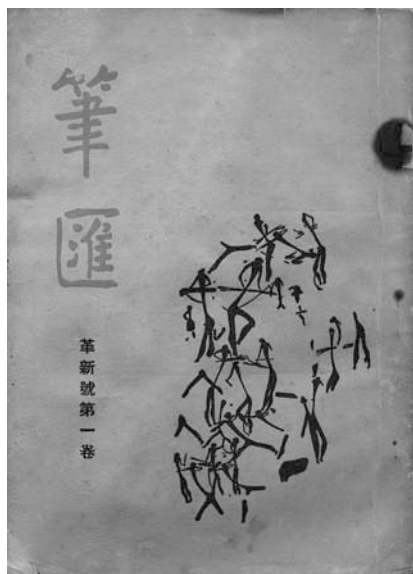 筆匯
革新號第一卷